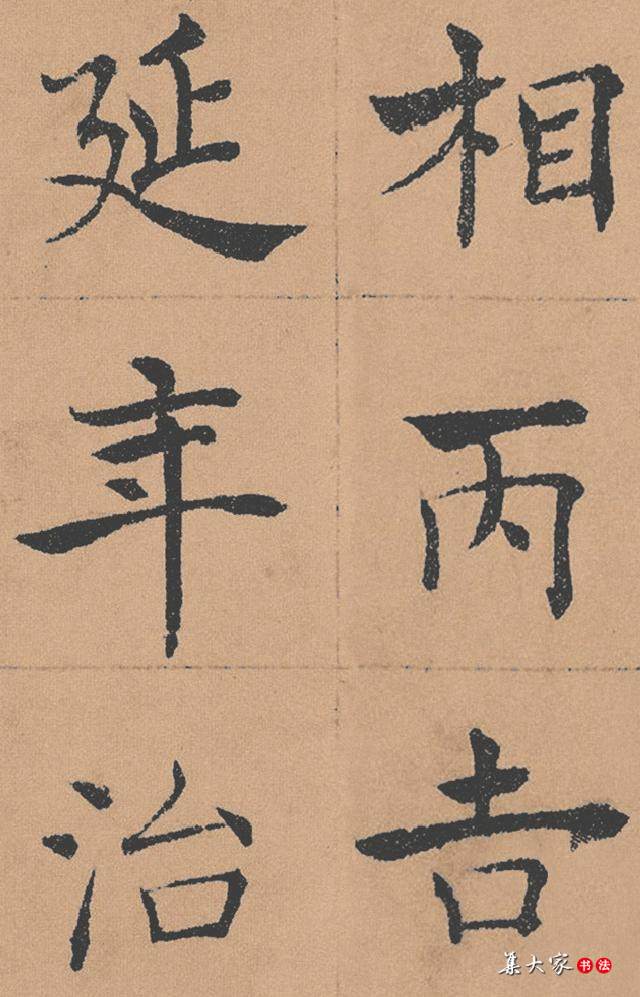 相丙吉
延年治
集大家书法